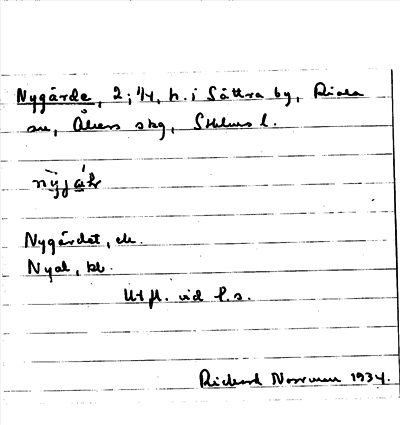 Nygärde, 2; 1/4, h. i Sättra by, Riala
sn, Åkers skg, Sthlms l.
nỳjáł
Nygärdet, ek.
Nyal, kb.
Utfl. vid l. s.
Rickard Norrman 1934.